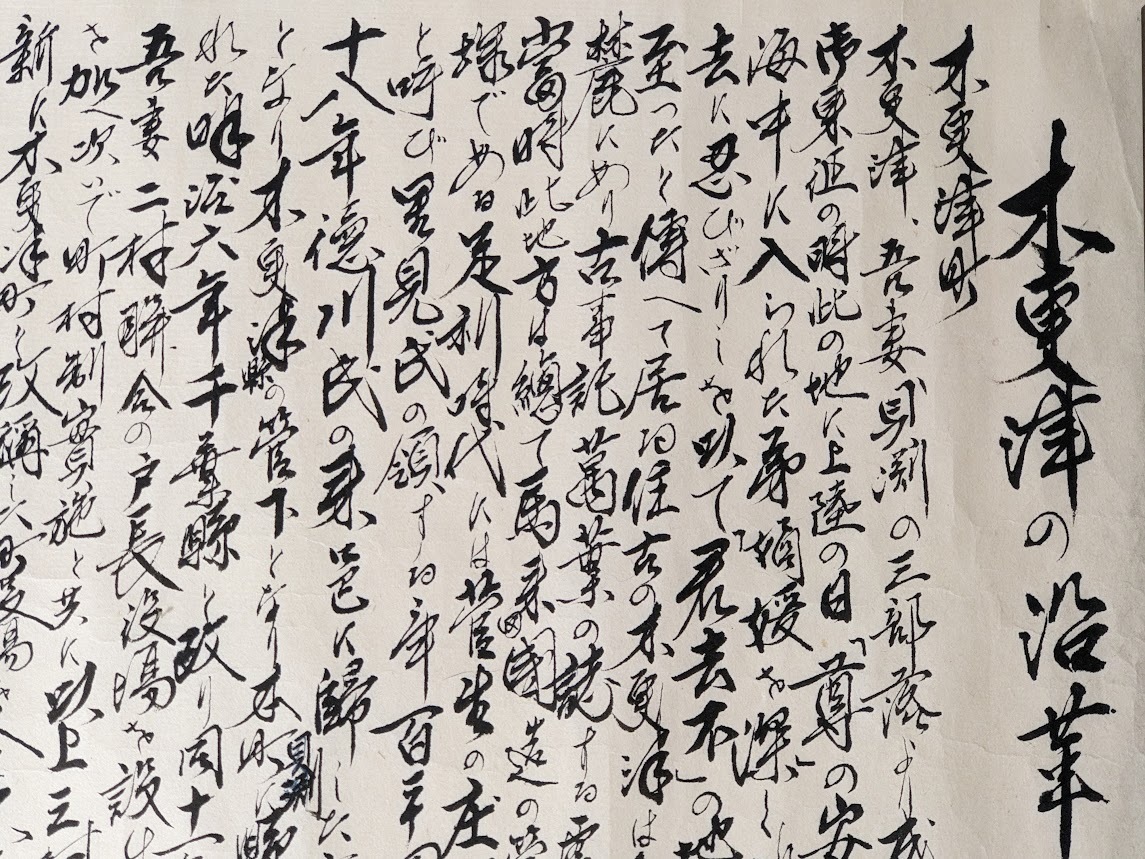 木更津の沿革
木更津町
木更津、吾妻貝渕の三部落より成
御東征の時此の地に上陸の日「尊」の
海中に入られた弟媛を深く
去に忍びざりしを以て「君去不」の地
至つたと傳へて居る往古の木更津は
麓にあり古事記萬葉の誌する
當時此地方は總て馬来田國造の
様である足利時代には菅生の庄
と呼び里見氏の領する年百
十八年徳川氏の来巴に歸した
となり木更津縣の管下となり本町貝渕
れた明治六年千葉縣と改り同十一
吾妻二村聯合の戸長役場を設け
を加へ次いで町村制實施と共に以上三
新に木更津町と改稱し